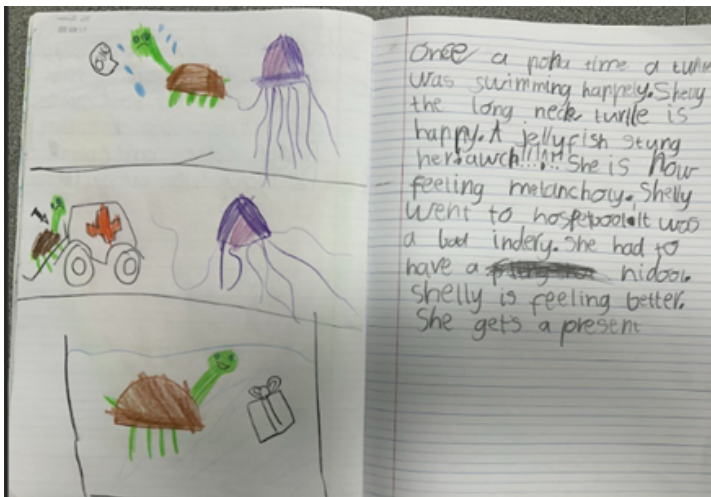 Once a pona time a
was swimming happely. Shelly
the long neck turtle is
happy. A jellyfish stung
her. awch!!!!!! She is now
feeling melancholy. Shelly
went to hospebool. It was
a bad indery. She had to
have a nidool.
Shelly is feeling better.
She gets a present